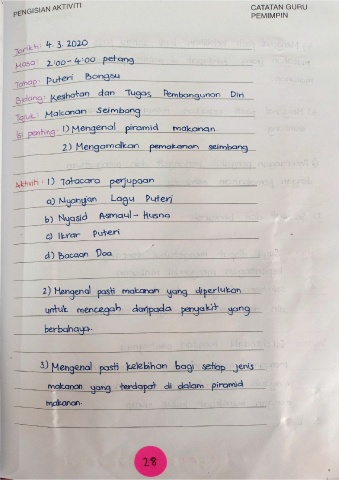 PENGISIAN AKTIVITI
CATATAN GURU
PEMIMPIN
Tarikh: 4. 3. 2020
Masa: 2:00 - 4:00 petang
Tahap: Puteri Bongsu
Bidang: Kesihatan dan Tugas Pembangunan Diri
Tajuk: Makanan Seimbang
Isi penting: 1) Mengenal piramid makanan
2) Mengamalkan pemakanan seimbang
Aktiviti: 1) Tatacara perjupaan
a) Nyanyian Lagu Puteri
b) Nyasid Asmaul - Husna
c) Ikrar Puteri
d) Bacaan Doa
2) Mengenal pasti makanan yang diperlukan
untuk mencegah daripada penyakit yang
berbahaya.
3) Mengenal pasti kelebihan bagi setiap jenis
makanan yang terdapat di dalam piramid
makanan.
28